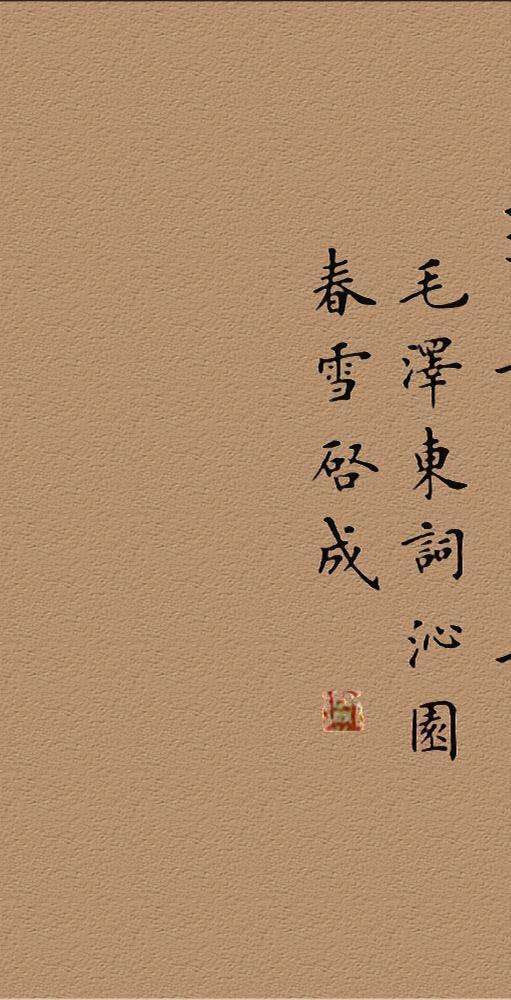 毛澤東詞沁園
春雪啓成